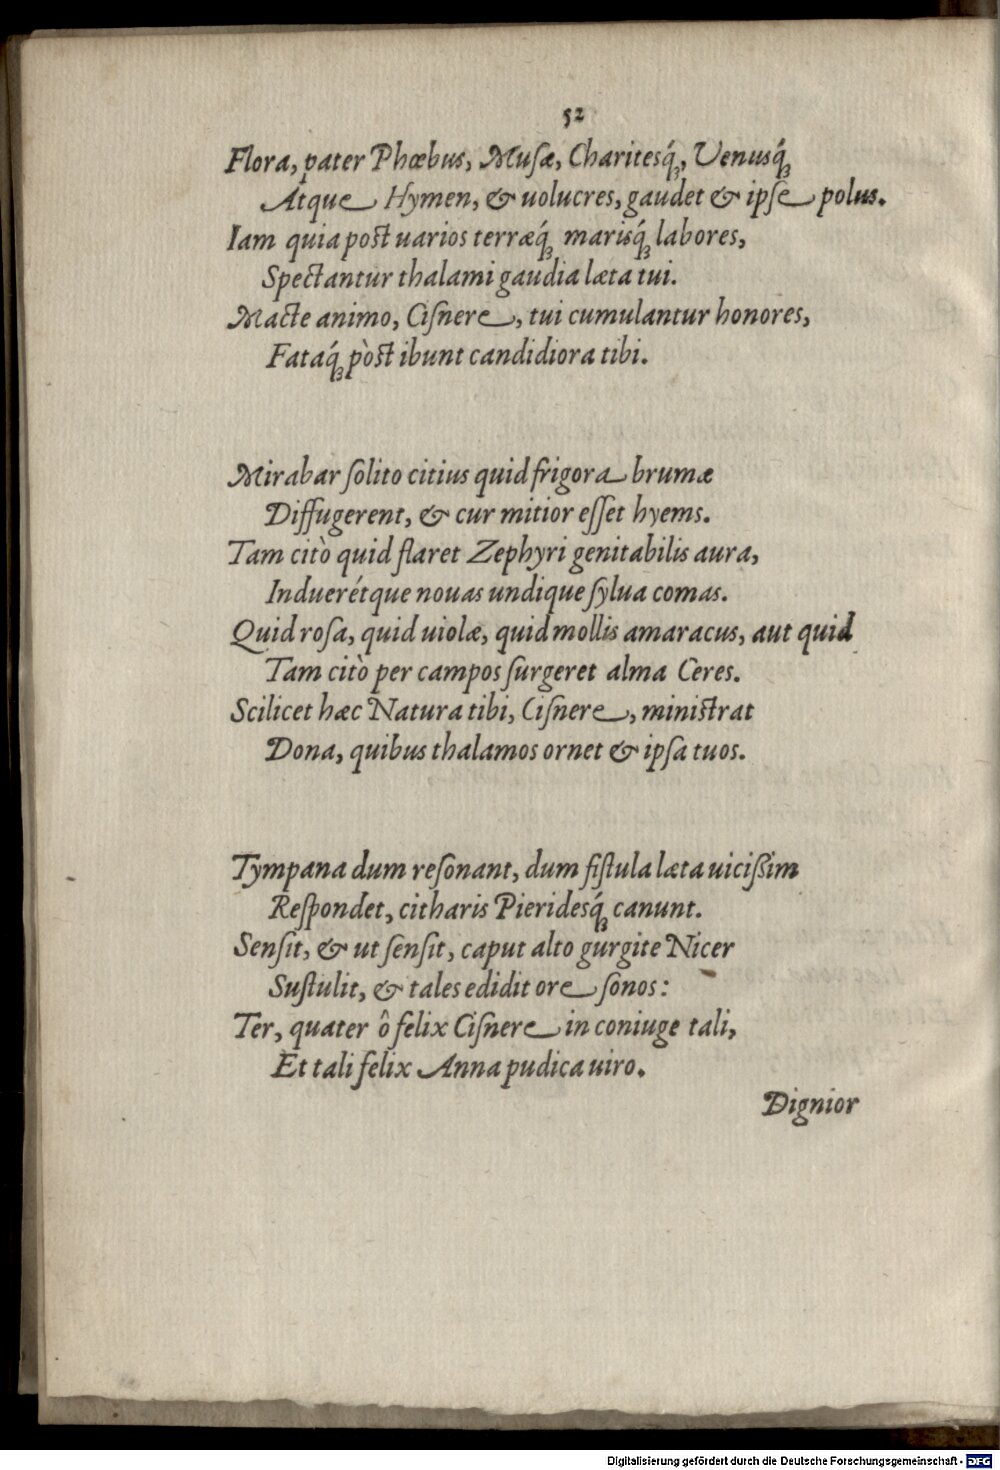 52
Flora, pater Phœbus, Muſæ, Charitesq́;, Venusq́;
Atque Hymen, & uolucres, gaudet & ipſe polus.
Iam quia post uarios terræq́; marisq́; labores,
Spectantur thalami gaudia læta tui.
Macte animo, Ciſnere, tui cumulantur honores,
Fataq́; pòst ibunt candidiora tibi.
Mirabar ſolito citius quid frigora brumæ
Diffugerent, & cur mitior eſſet hyems.
Tam citò quid flaret Zephyri genitabilis aura,
Induerétque nouas undique ſylua comas.
Quid roſa, quid uiolæ, quid mollis amaracus, aut quid
Tam citò per campos ſurgeret alma Ceres.
Scilicet hæc Natura tibi, Ciſnere, ministrat
Dona, quibus thalamos ornet & ipſa tuos.
Tympana dum reſonant, dum fiſtula læta uiciſsim
Reſpondet, citharis Pieridesq́; canunt.
Senſit, & ut ſenſit, caput alto gurgite Nicer
Suſtulit, & tales edidit ore ſonos:
Ter, quater ô felix Ciſnere in coniuge tali,
Et tali felix Anna pudica uiro.
Dignior
Digitalisierung gefördert durch die Deutsche Forschungsgemeinschaft - DFG